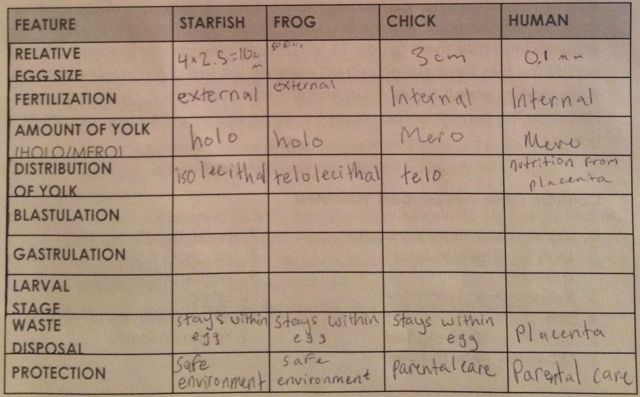 FEATURE STARFISH FROG CHICK HUMAN
RELATIVE
EGG SIZE 4x2.5=10c
m 3 cm 0.1 mm
FERTILIZATION external external Internal Internal
AMOUNT OF YOLK
(HOLO/MERO) holo holo Mero Mero
DISTRIBUTION
OF YOLK isolecithal telolecithal telo nutrition from
placenta
BLASTULATION
GASTRULATION
LARVAL
STAGE
WASTE
DISPOSAL stays within
egg stays within
egg stays within
egg Placenta
PROTECTION safe
environment safe
environment Parental care Parental care